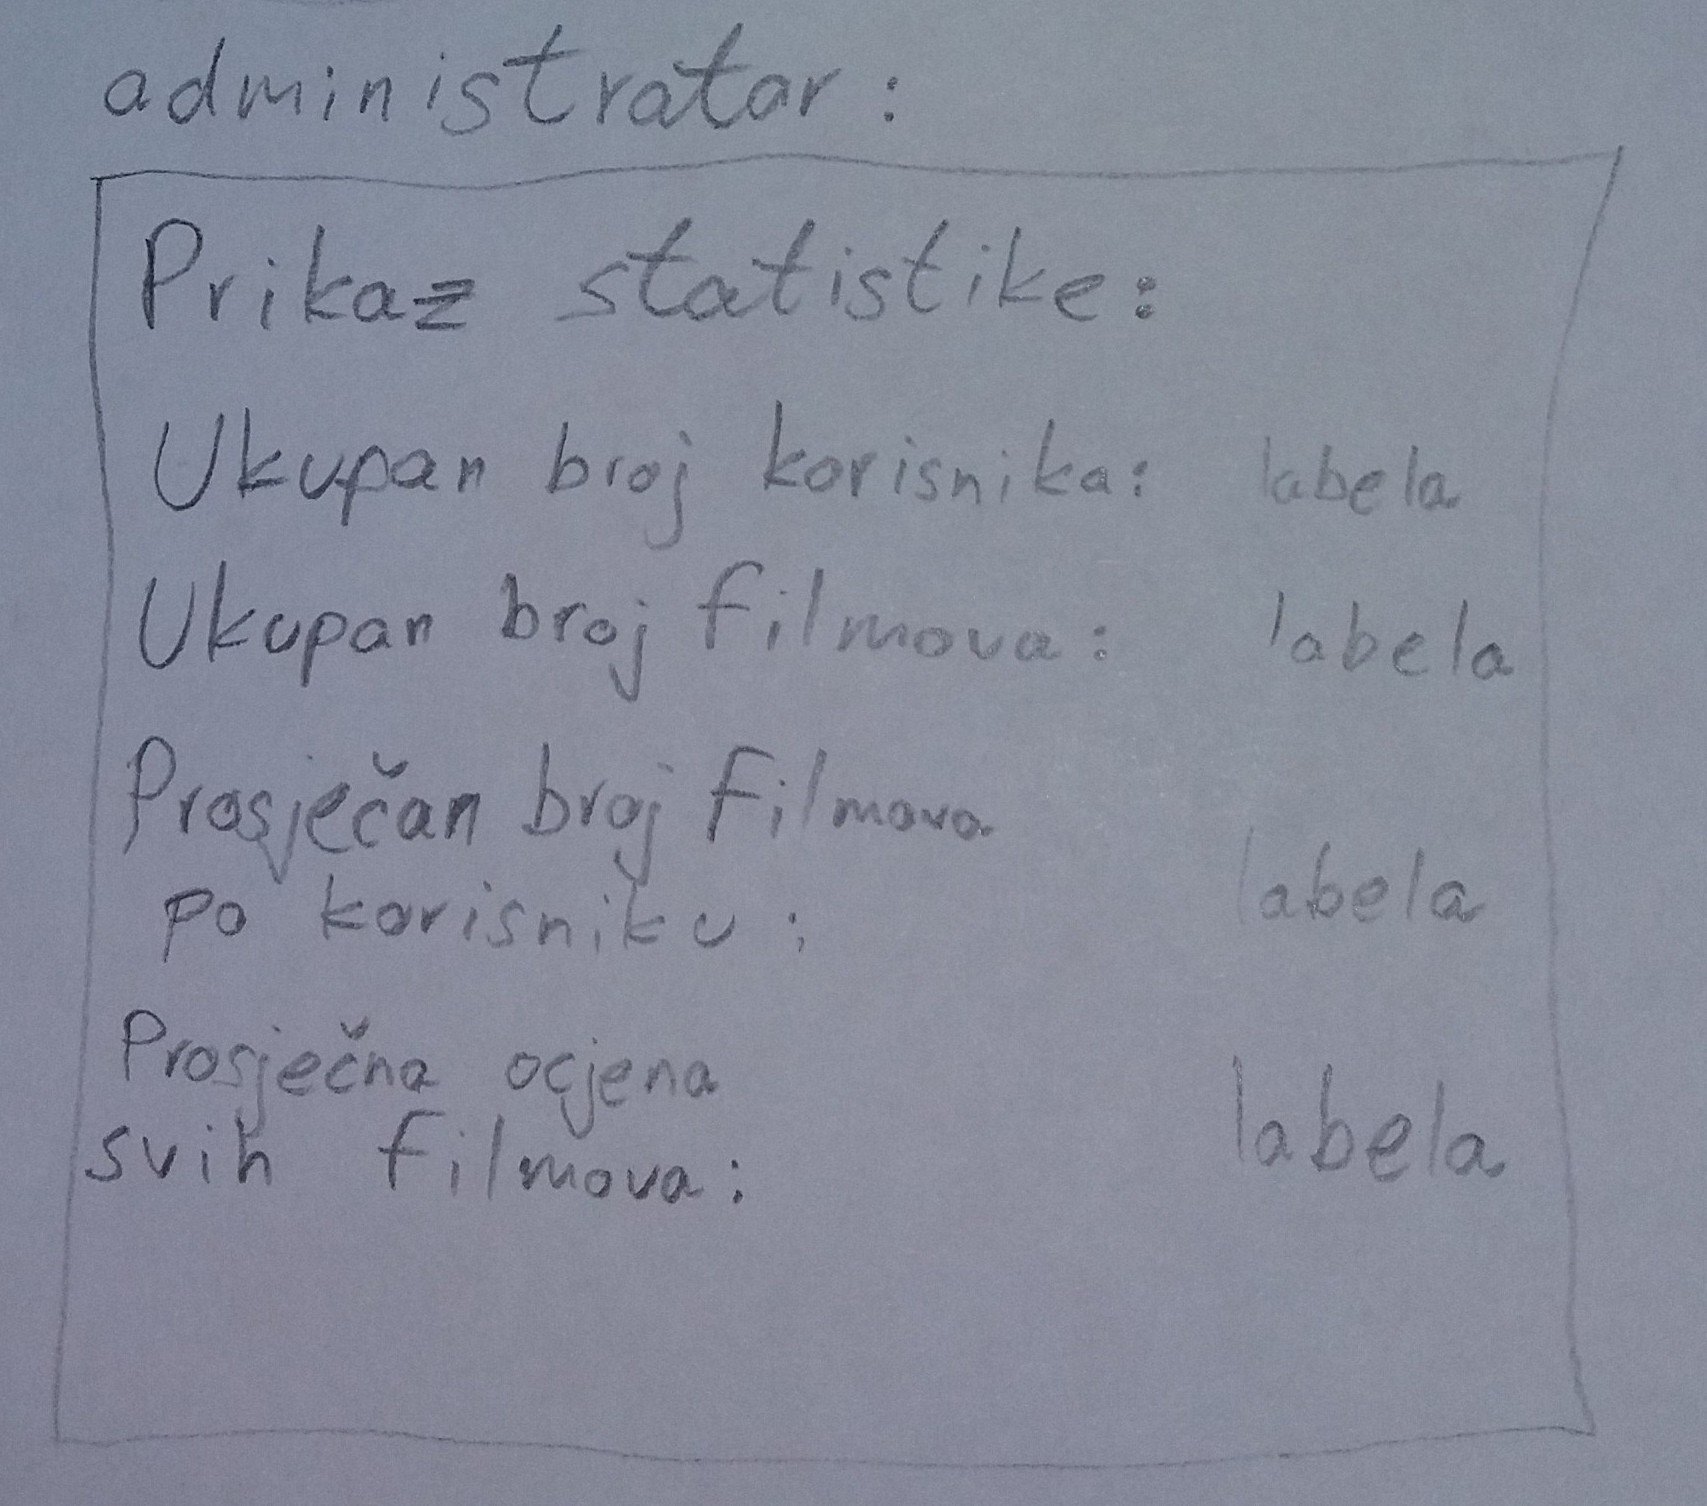 administrator:
Prikaz statistike:
Ukupan broj korisnika: labela
Ukupan broj filmova: labela
Prosječan broj filmova
po korisniku: labela
Prosječna ocjena
svih filmova: labela